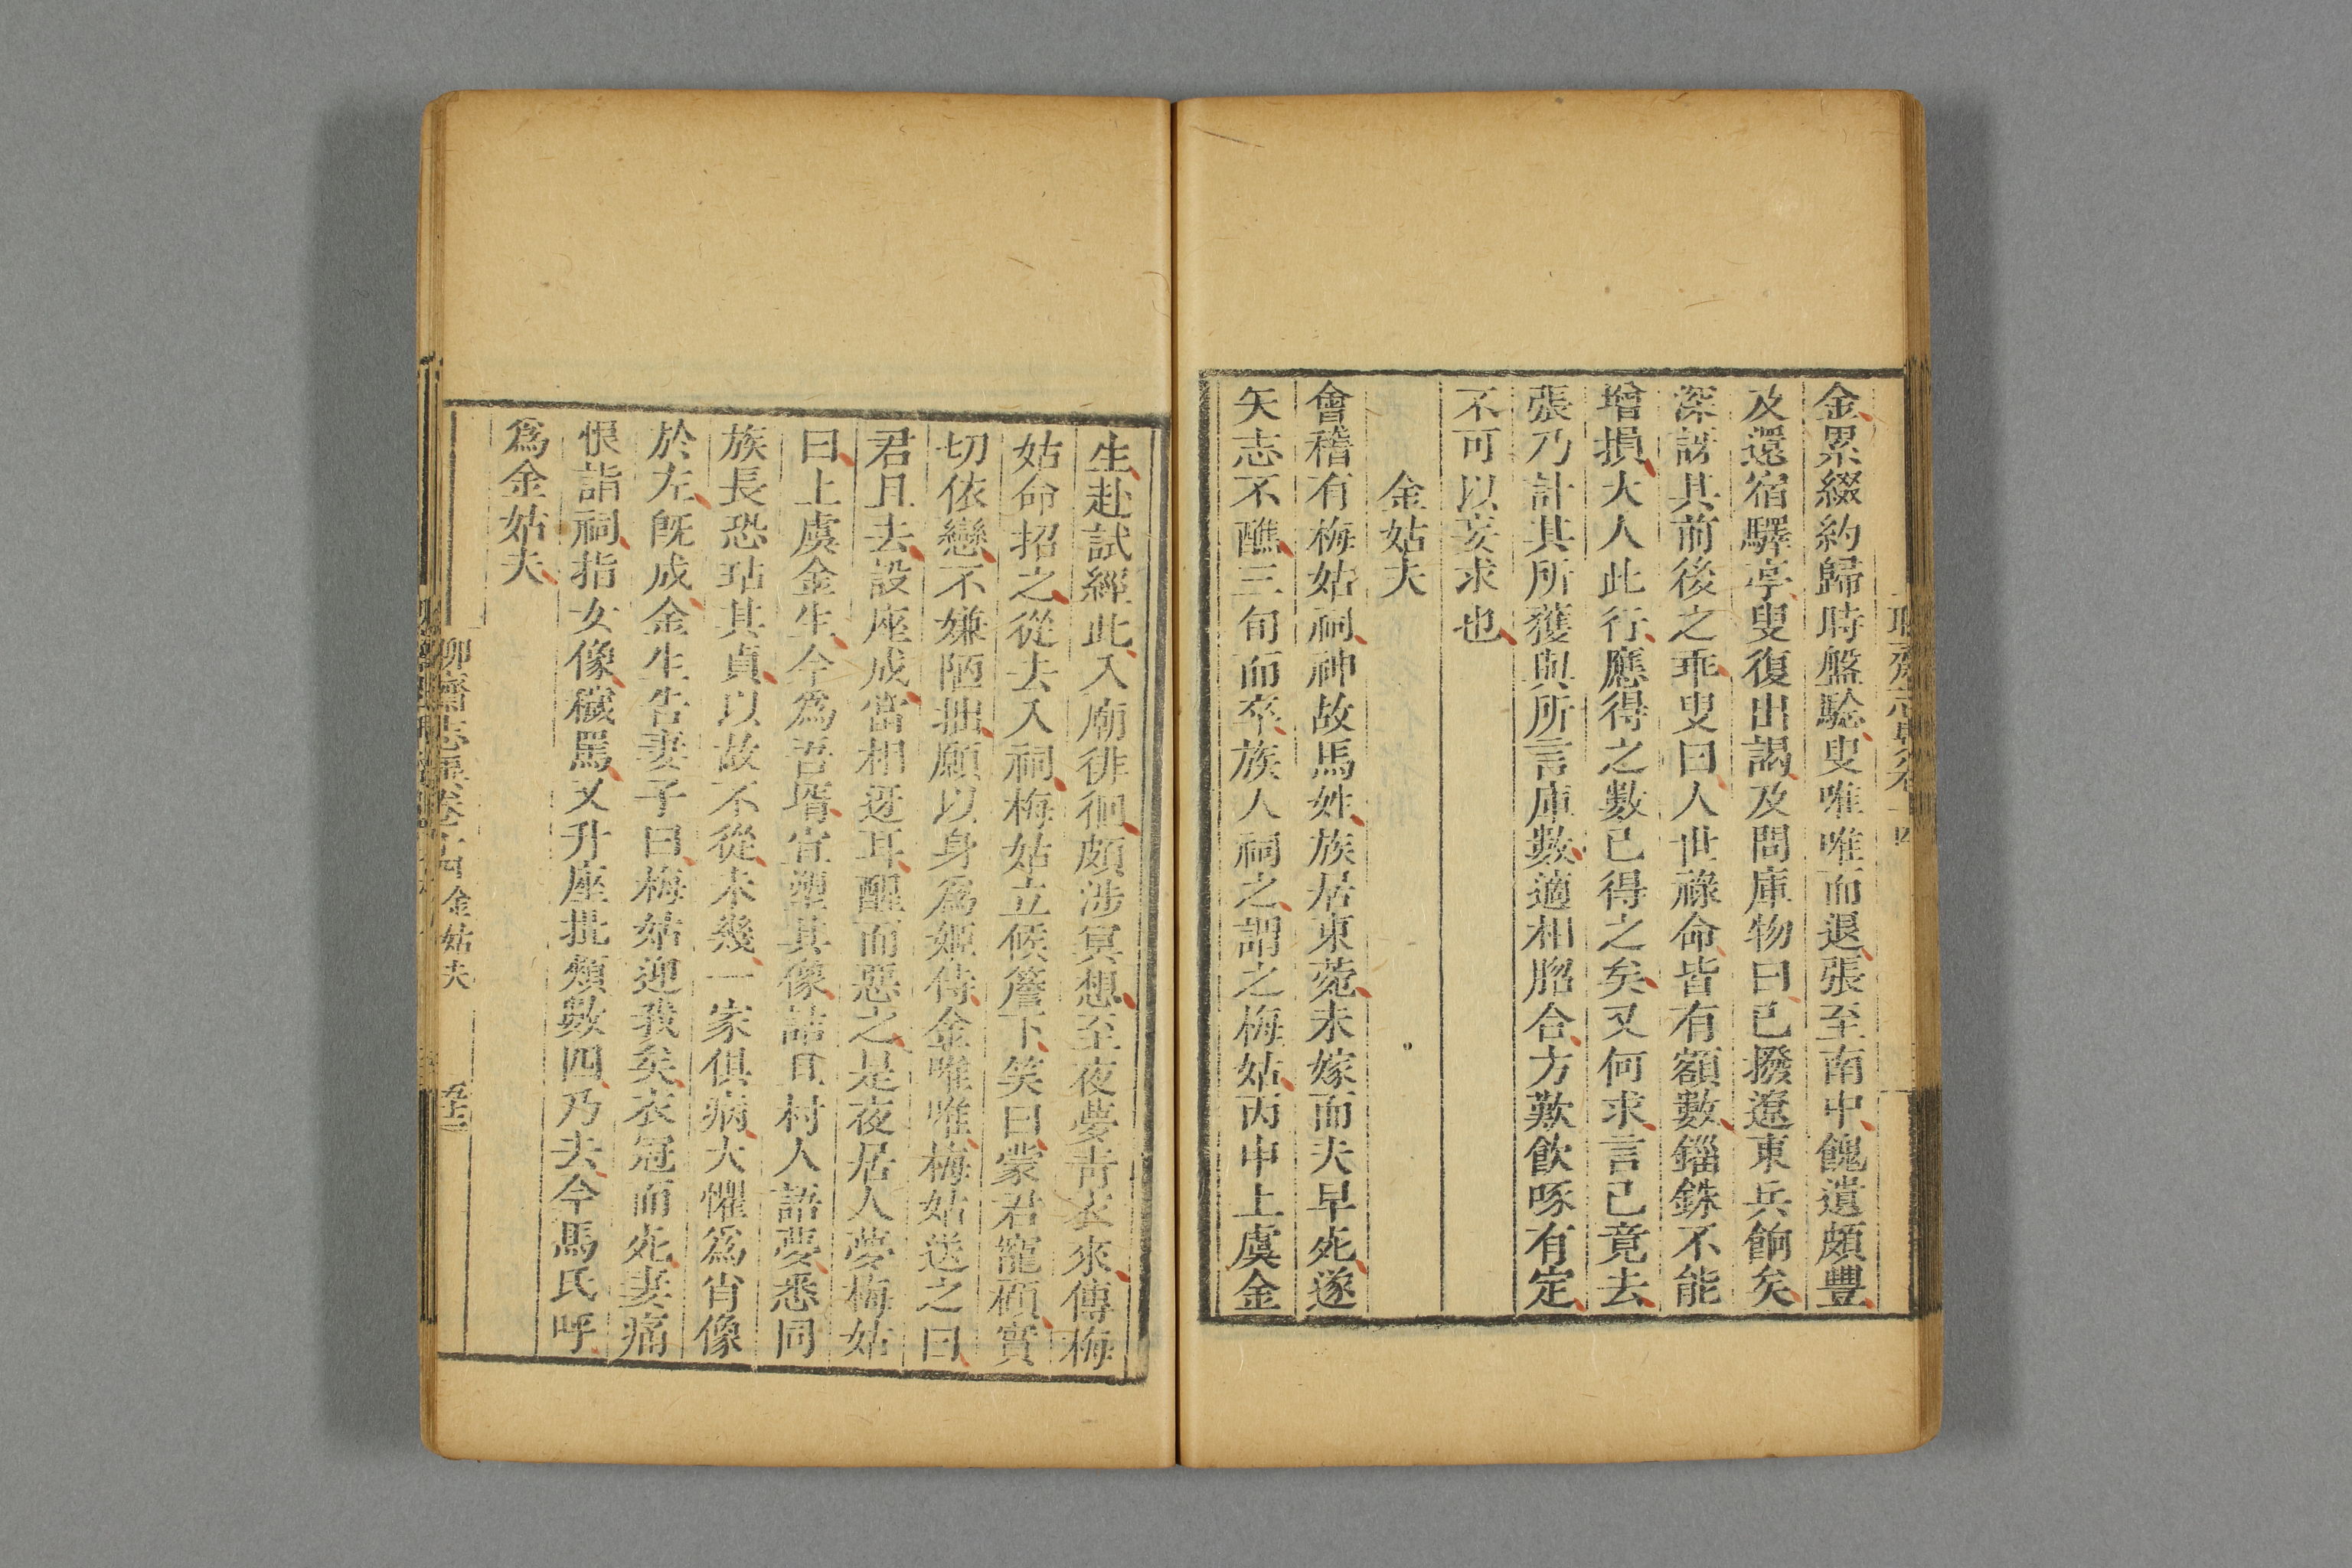 金累綴約歸時盤驗叟唯唯而退張至南中餽遺頗豐
及還宿驛亭叟復出謁及問庫物曰已撥遼東兵餉矣
深訝其前後之乖叟曰人世祿命皆有額數錙銖不能
增損大人此行應得之數已得之矣又何求言已竟去
張乃計其所獲與所言庫數適相脗合方歎飲啄有定
不可以妄求也
金姑夫
會稽有梅姑祠神故馬姓族居東莞未嫁而夫早死遂
矢志不醮三旬而卒族人祠之謂之梅姑丙申上虞金
生赴試經此入廟徘徊頗涉冥想至夜夢青衣來傳梅
姑命招之從去入祠梅姑立候簷下笑曰蒙君寵顧實
切依戀不嫌陋拙願以身爲姬侍金唯唯梅姑送之曰
君且去設座成當相迓耳醒而惡之是夜居人夢梅姑
曰上虞金生今爲吾壻宜塑其像詰旦村人語夢悉同
族長恐玷其貞以故不從未幾一家俱病大懼爲肖像
於左旣成金生告妻子曰梅姑迎我矣衣冠而死妻痛
恨詣祠指女像穢罵又升座批頰數四乃去今馬氏呼
爲金姑夫
聊齋志異卷十四 金姑夫